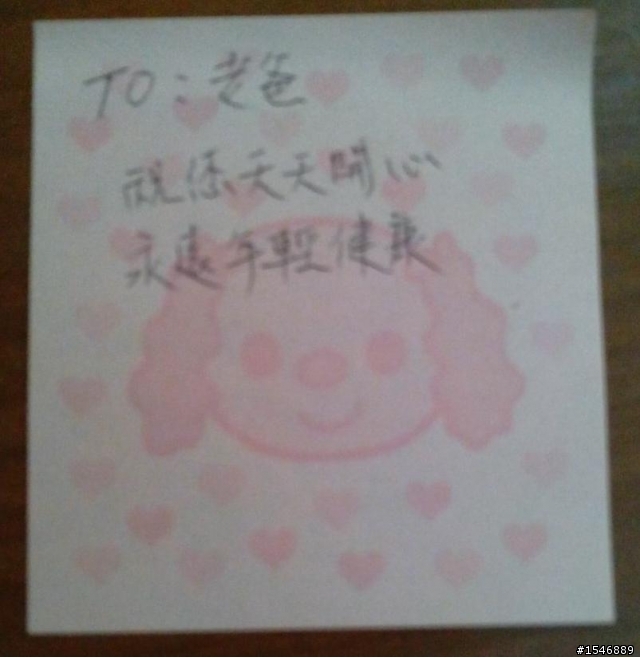 TO：老爸
祝您天天開心
永遠年輕健康
#1546889